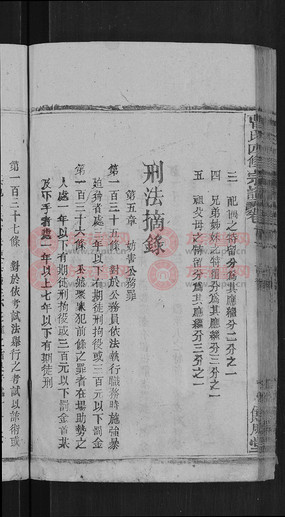 三 配偶之特留分為其應繼分二分之一
四 兄弟姊妹之特留分為其應繼分三分之一
五 祖父母之特留分為其應繼分三分之一
刑法摘錄
第五章 妨害公務罪
第一百三十五條 對於公務員依法執行職務時施強暴
脅迫者處三年以下有期徒刑拘役或三百元以下罰金
第一百三十六條 公然聚眾犯前條之罪者在場助勢之
人處一年以下有期徒刑拘役或三百元以下罰金首謀
及下手者處一年以上七年以下有期徒刑
第一百三十七條 對於依考試法舉行之考試以詐術或